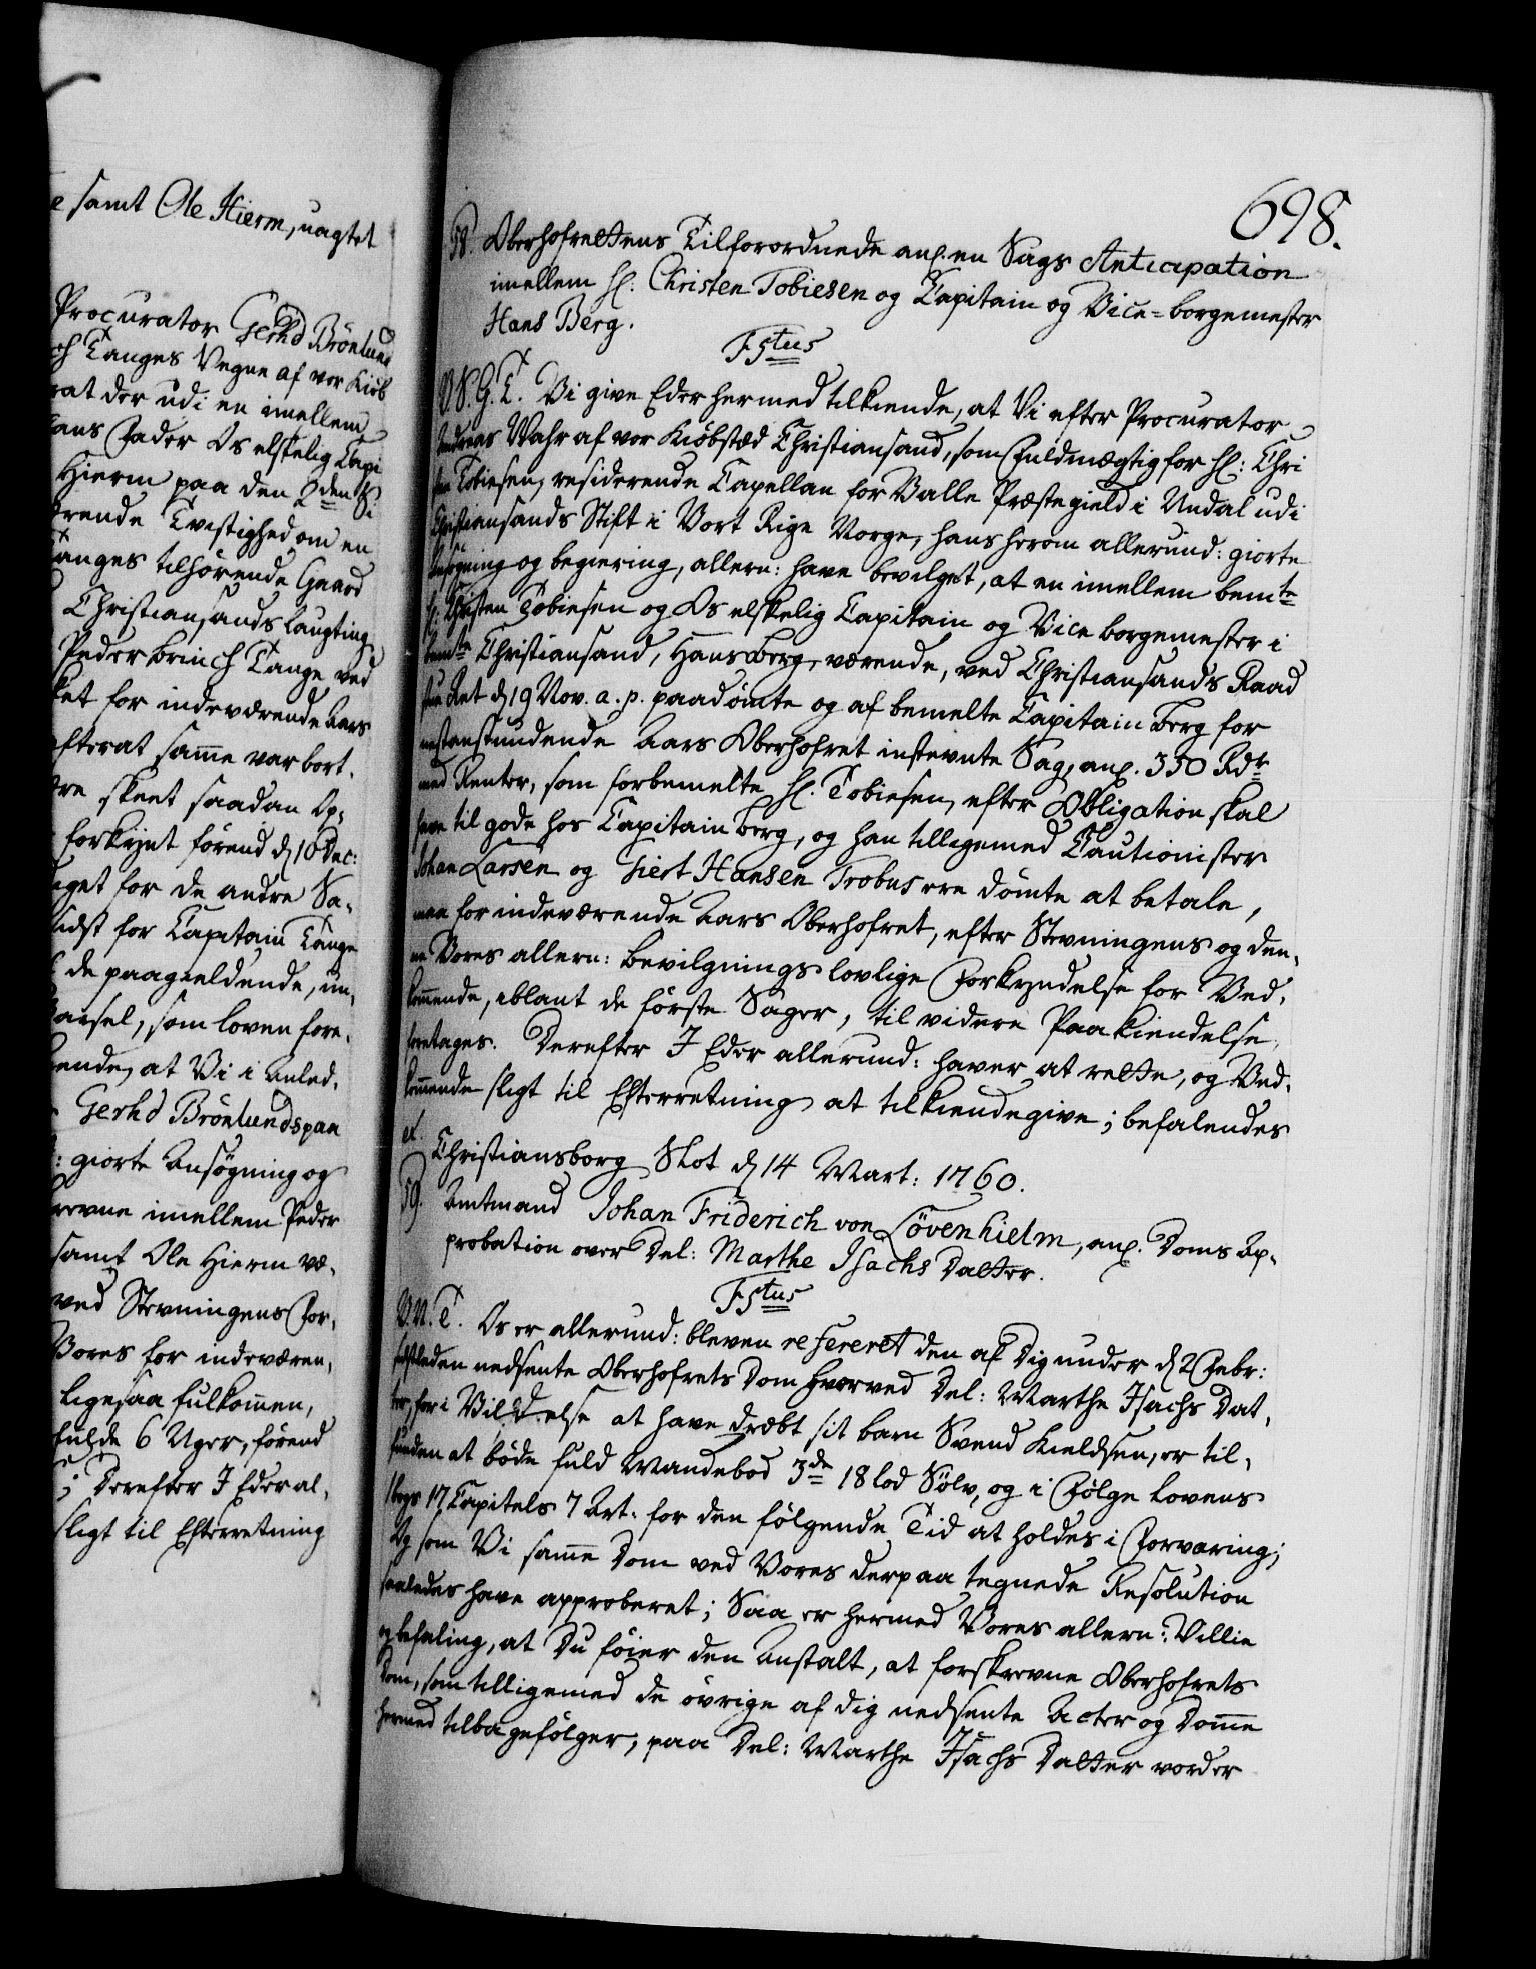 e samt Ole Hierm, uagtet
Procurator Gerhd Brönlund
ch Tanges Vegne af vor Kiöb
rat der udi en imellem
hans Fader Os elskelig Capi
Hierm paa den 2den Si
ærende Tvistighed om en
Tanges tilhörende Gaard
Christiansands Laugting
Peder brinch Tange ved
ket for indeværende Aars
efterat samme var bort,
re skeet saadan Op,
forkynt förend d 10 Dec:
aget for de andre Sa,
sidst for Capitain Tange
de paagieldende, un,
Varsel, som loven fore,
kiende, at Vi i Anled,
Gerhd Brönlunds paa
: giorte Ansøgning og
krevne imellem Peder
samt Ole Hierm væ,
ved Stevningens For,
Vores for indeværen,
ligesaa fulkommen,
fulde 6 Uger, förend
; Derefter I Eder al,
sligt til Efterretning
698.
58. Oberhofrettens Tilforordnede anl. en Sags Anticipation
imellem Hr. Christen Tobiesen og Capitain og Vice-borgemester
Hans Berg.
F5tus
V.S.G.T. Vi give Eder hermed tilkiende, at Vi efter Procurator
Andreas Wahr af vor Kiöbstæd Christiansand, som Fuldmægtig for Hr: Chri
sten Tobiesen, residerende Capellan for Valle Præstegield i Undal udi
Christiansands Stift i Vort Rige Norge, hans herom allerund: giorte
Ansøgning og begiering, allern: have bevilget, at en imellem bemte
Hr: Christen Tobiesen og Os elskelig Capitain og Vice borgemester i
bemte Christiansand, Hans Berg, værende, ved Christiansands Raad
stue Ret d 19 Nov. a. p. paadömte og af bemelte Capitain Berg for
nestanstundende Aars Oberhofret instevnte Sag, anl. 350 Rdr
med Renter, som forbemelte Hr. Tobiesen, efter Obligation skal
have til gode hos Capitain Berg, og han tilligemed Cautionister
Johan Larsen og Giert Hansen Frobus ere dömte at betale,
maa for indeværende Aars Oberhofret, efter Stevningens og den,
ne Vores allern: Bevilgnings lovlige Forkyndelse for Ved,
kommende, iblant de förste Sager, til videre Paakiendelse
foretages. Derefter I Eder allerund: haver at rette, og Ved,
kommende sligt til Efterretning at tilkiendegive; befalendes
et.
Christiansborg Slot d 14 Mart: 1760.
59. Amtmand Johan Friderich von Lövenhielm, anl. Doms Ap,
probation over Del: Marthe Isachs Datter.
F5tus
V.N.T. Os er allerund: bleven refereret den af Dig under d 2 Febr:
sidstleden nedsente Oberhofrets Dom hvorved Del: Marthe Isachs Dat,
ter, for i Vildelse at have dræbt sit barn Svend Kieldsen, er til,
funden at böde fuld Mandebod 3de 18 lod Sölv, og i Fölge Lovens
1 bogs 17 Capitels 7 Art. for den fölgende Tid at holdes i Forvaring;
Og som Vi samme Dom ved Vores derpaa tegnede Resolution
saaledes have approberet; Saa er hermed Vores allern: Villie
og befaling, at Du föier den Anstalt, at forskrevne Oberhofrets
Dom, som tilligemed de övrige af dig nedsente Acter og Domme
hermed tilbagefölger, paa Del: Marthe Isachs Datter vorder